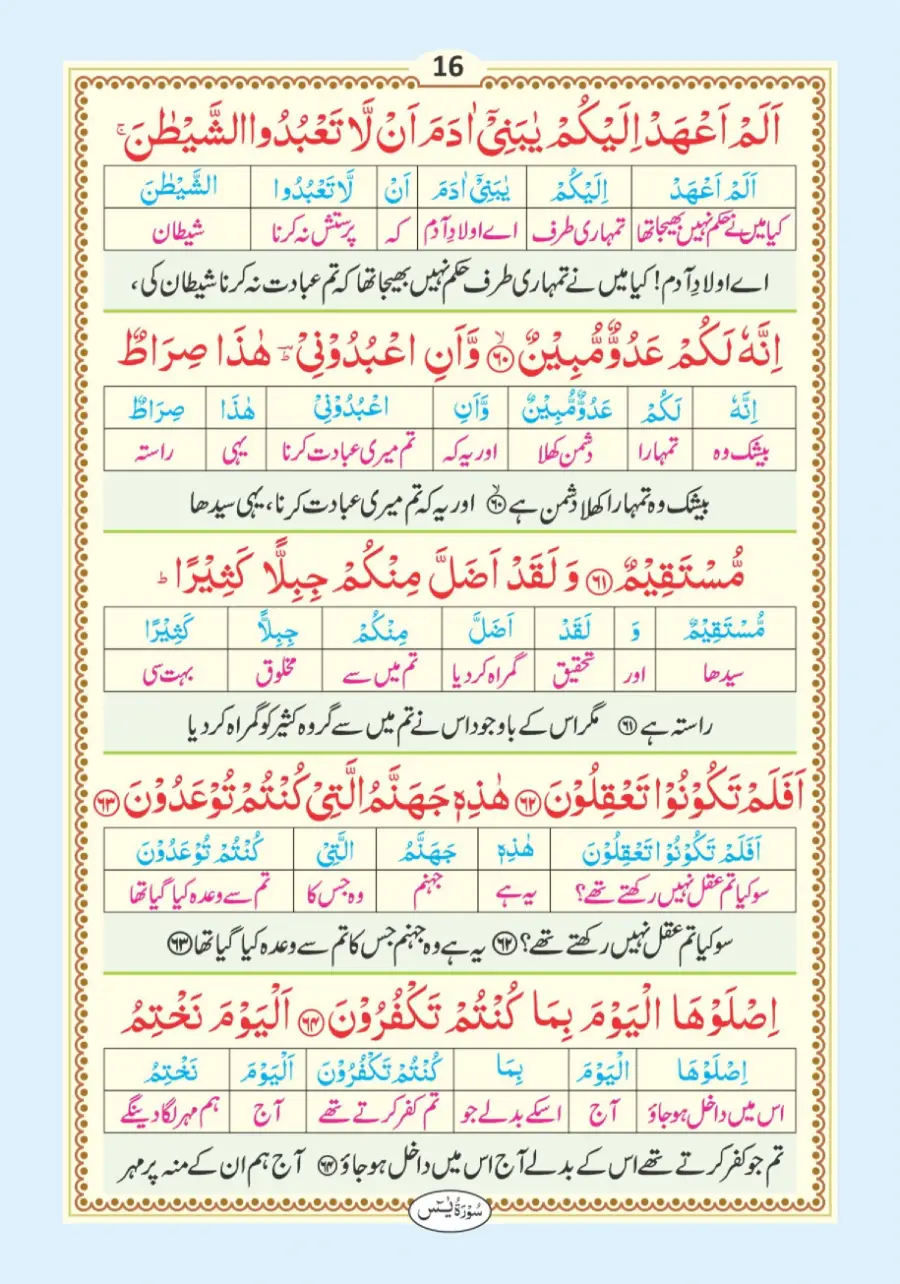 16
اَلَمۡ اَعۡهَدۡ اِلَيۡكُمۡ يٰبَنِىۡۤ اٰدَمَ اَنۡ لَّا تَعۡبُدُوا الشَّيۡطٰنَ‌ۚ
اَلَمۡ اَعۡهَدۡ اِلَيۡكُمۡ يٰبَنِىۡۤ اٰدَمَ اَنۡ لَّا تَعۡبُدُوا الشَّيۡطٰنَ
کیا میں نے حکم نہیں بھیجا تھا تمہاری طرف اے اولادِ آدم کہ پرستش نہ کرنا شیطان
اے اولادِ آدم! کیا میں نے تمہاری طرف حکم نہیں بھیجا تھا کہ تم عبادت نہ کرنا شیطان کی،
اِنَّهٗ لَكُمۡ عَدُوٌّ مُّبِيۡنٌ ۙ‏﴿۶۰﴾ وَّاَنِ اعۡبُدُوۡنِىۡ ؔ‌ؕ هٰذَا صِرَاطٌ
اِنَّهٗ لَكُمۡ عَدُوٌّ مُّبِيۡنٌ وَّاَنِ اعۡبُدُوۡنِىۡ هٰذَا صِرَاطٌ
بیشک وہ تمہارا دشمن کھلا اور یہ کہ تم میری عبادت کرنا یہی راستہ
بیشک وہ تمہارا کھلا دشمن ہے ۙ﴿۶۰﴾ اور یہ کہ تم میری عبادت کرنا، یہی سیدھا
مُّسۡتَقِيۡمٌ ‏﴿۶۱﴾ وَلَقَدۡ اَضَلَّ مِنۡكُمۡ جِبِلًّا كَثِيۡرًا ؕ
مُّسۡتَقِيۡمٌ وَ لَقَدۡ اَضَلَّ مِنۡكُمۡ جِبِلًّا كَثِيۡرًا
سیدھا اور تحقیق گمراہ کردیا تم میں سے مخلوق بہت سی
راستہ ہے ﴿۶۱﴾ مگر اس کے باوجود اس نے تم میں سے گروہ کثیر کو گمراہ کردیا
اَفَلَمۡ تَكُوۡنُوۡا تَعۡقِلُوۡنَ ‏﴿۶۲﴾ هٰذِهٖ جَهَنَّمُ الَّتِىۡ كُنۡتُمۡ تُوۡعَدُوۡنَ ‏﴿۶۳﴾
اَفَلَمۡ تَكُوۡنُوۡا تَعۡقِلُوۡنَ هٰذِهٖ جَهَنَّمُ الَّتِىۡ كُنۡتُمۡ تُوۡعَدُوۡنَ
سو کیا تم عقل نہیں رکھتے تھے؟ یہ ہے جہنم وہ جس کا تم سے وعدہ کیا گیا تھا
سو کیا تم عقل نہیں رکھتے تھے؟ ﴿۶۲﴾ یہ ہے وہ جہنم جس کا تم سے وعدہ کیا گیا تھا ﴿۶۳﴾
اِصۡلَوۡهَا الۡيَوۡمَ بِمَا كُنۡتُمۡ تَكۡفُرُوۡنَ ‏﴿۶۴﴾ اَلۡيَوۡمَ نَخۡتِمُ
اِصۡلَوۡهَا الۡيَوۡمَ بِمَا كُنۡتُمۡ تَكۡفُرُوۡنَ اَلۡيَوۡمَ نَخۡتِمُ
اس میں داخل ہو جاؤ آج اسکے بدلے جو تم کفر کرتے تھے آج ہم مہر لگا دینگے
تم جو کفر کرتے تھے اس کے بدلے آج اس میں داخل ہو جاؤ ﴿۶۴﴾ آج ہم ان کے منہ پر مہر
سُوۡرَةُ يٰسٓ